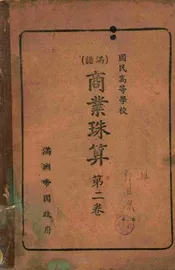 國民高等學校
(滿語)
商業珠算
第二卷
滿洲帝國政府